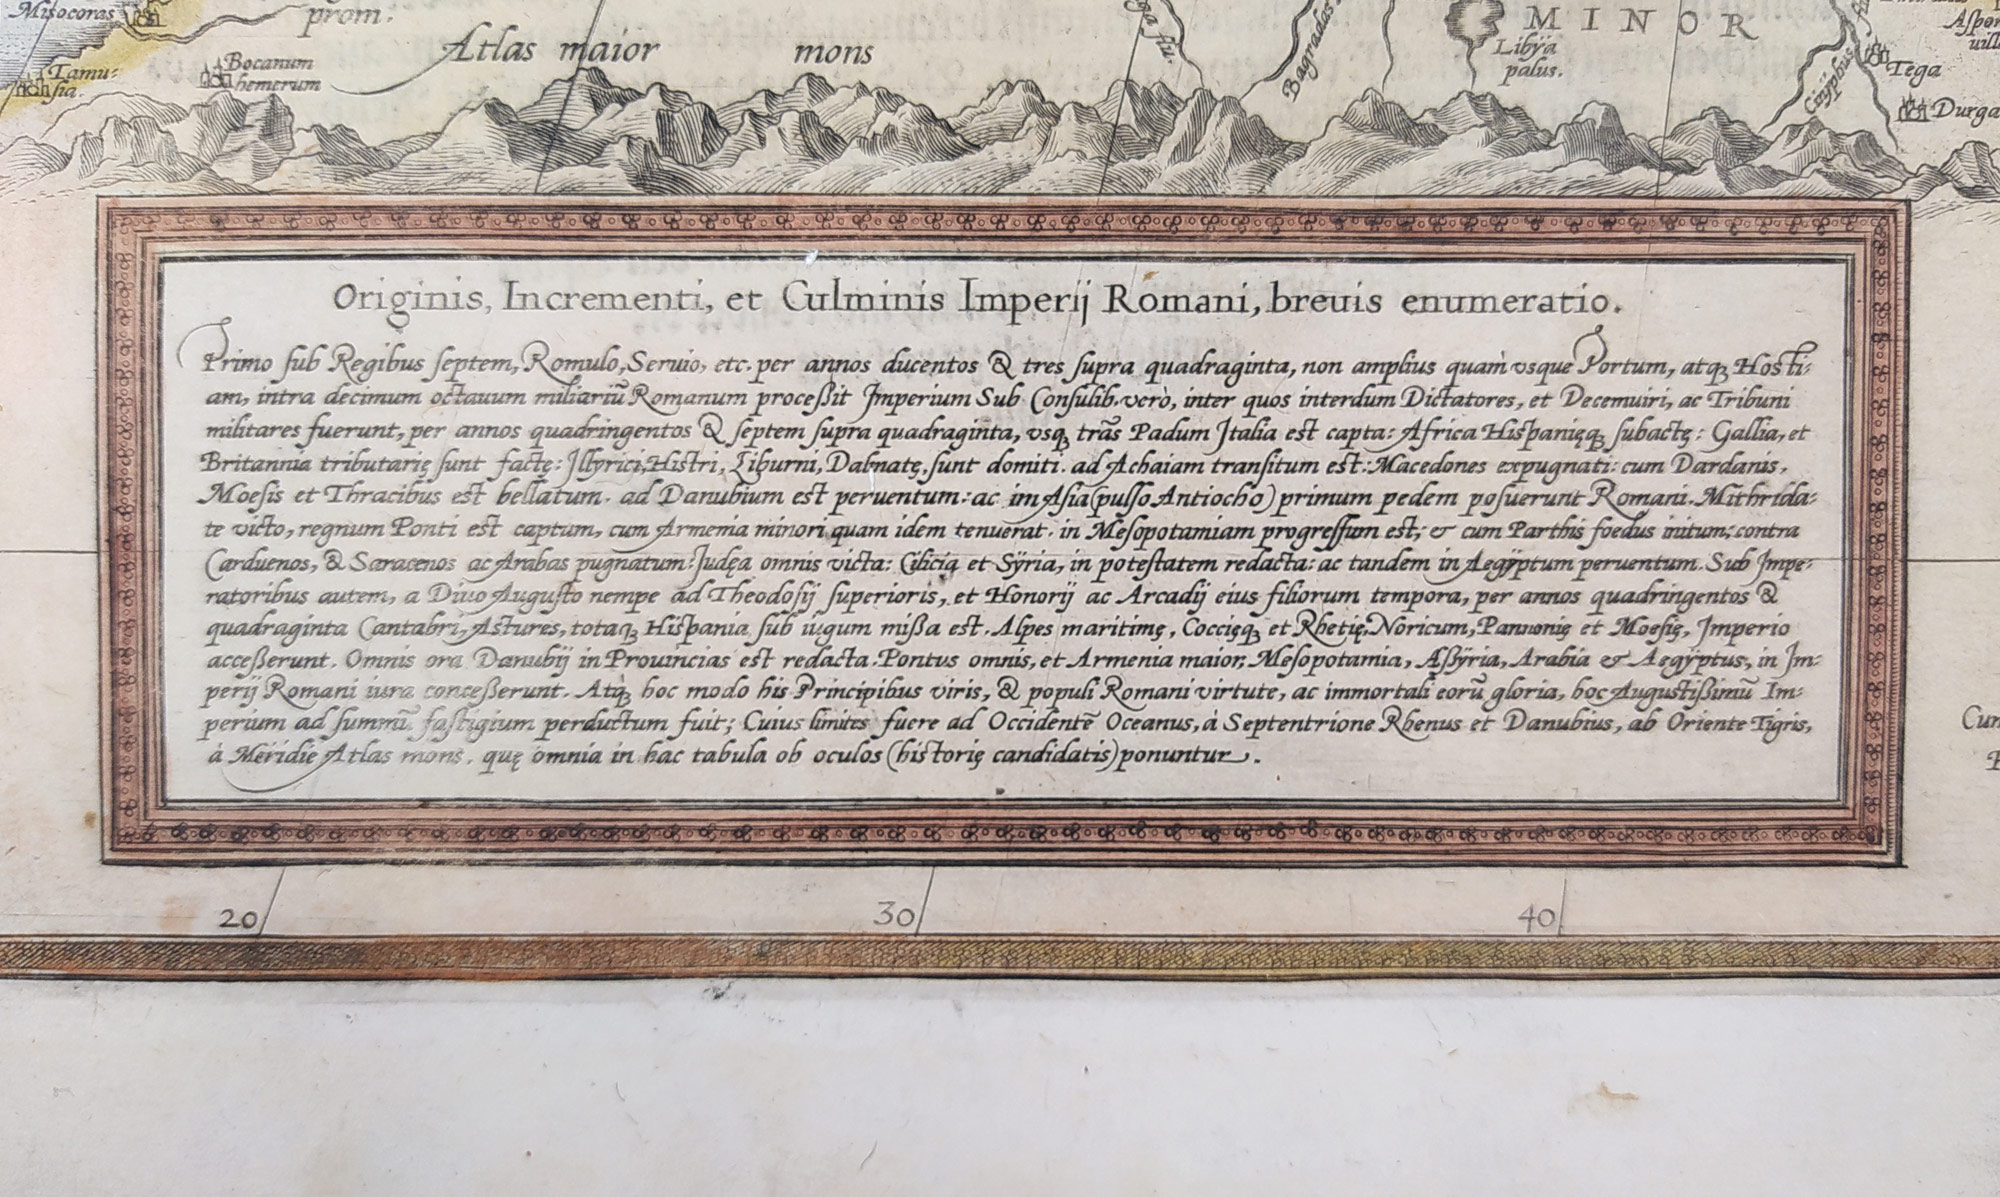 Misocoras
prom.
Atlas maior mons
Bocanum
hemerum
Tamu-
sia.
Bagradas
MINOR
Libÿa
palus.
Cinÿphus
Tega
Durga
Originis, Incrementi, et Culminis Imperij Romani, breuis enumeratio.
Primo sub Regibus septem, Romulo, Seruio, etc. per annos ducentos & tres supra quadraginta, non amplius quam usque Portum, atq̨ Hosti-
am, intra decimum octauum miliariũ Romanum proceßit Imperium Sub Consulib. verò, inter quos interdum Dictatores, et Decemuiri, ac Tribuni
militares fuerunt, per annos quadringentos & septem supra quadraginta, vsq̨ trãs Padum Italia est capta: Africa Hispanięq̨ subactę: Gallia, et
Britannia tributarię sunt factę: Illyrici, Histri, Liburni, Dalmatę, sunt domiti. ad Achaiam transitum est: Macedones expugnati: cum Dardanis,
Moesis et Thracibus est bellatum. ad Danubium est peruentum: ac in Asia (pulso Antiocho) primum pedem posuerunt Romani. Mithrida-
te victo, regnum Ponti est captum, cum Armenia minori quam idem tenuerat. in Mesopotamiam progressum est; & cum Parthis foedus initum; contra
Carduenos, & Saracenos ac Arabas pugnatum: Judęa omnis victa: Cilicia et Sÿria, in potestatem redacta: ac tandem in Aegÿptum peruentum. Sub Impe-
ratoribus autem, a Diuo Augusto nempe ad Theodosij superioris, et Honorij ac Arcadij eius filiorum tempora, per annos quadringentos &
quadraginta Cantabri, Astures, totaq̨ Hispania sub iugum mißa est. Alpes maritimę, Coccięq̨ et Rhetię, Noricum, Pannonię et Moesię, Imperio
acceßerunt. Omnis ora Danubij in Prouincias est redacta. Pontus omnis, et Armenia maior, Mesopotamia, Aßÿria, Arabia & Aegÿptus, in Im-
perij Romani iura conceßerunt. Atq̨ hoc modo his Principibus viris, & populi Romani virtute, ac immortali eorũ gloria, hoc Augustißimũ Im-
perium ad summũ fastigium perductum fuit; Cuius limites fuere ad Occidentẽ Oceanus, à Septentrione Rhenus et Danubius, ab Oriente Tigris,
à Meridie Atlas mons. quę omnia in hac tabula ob oculos (historię candidatis) ponuntur.
20 30 40